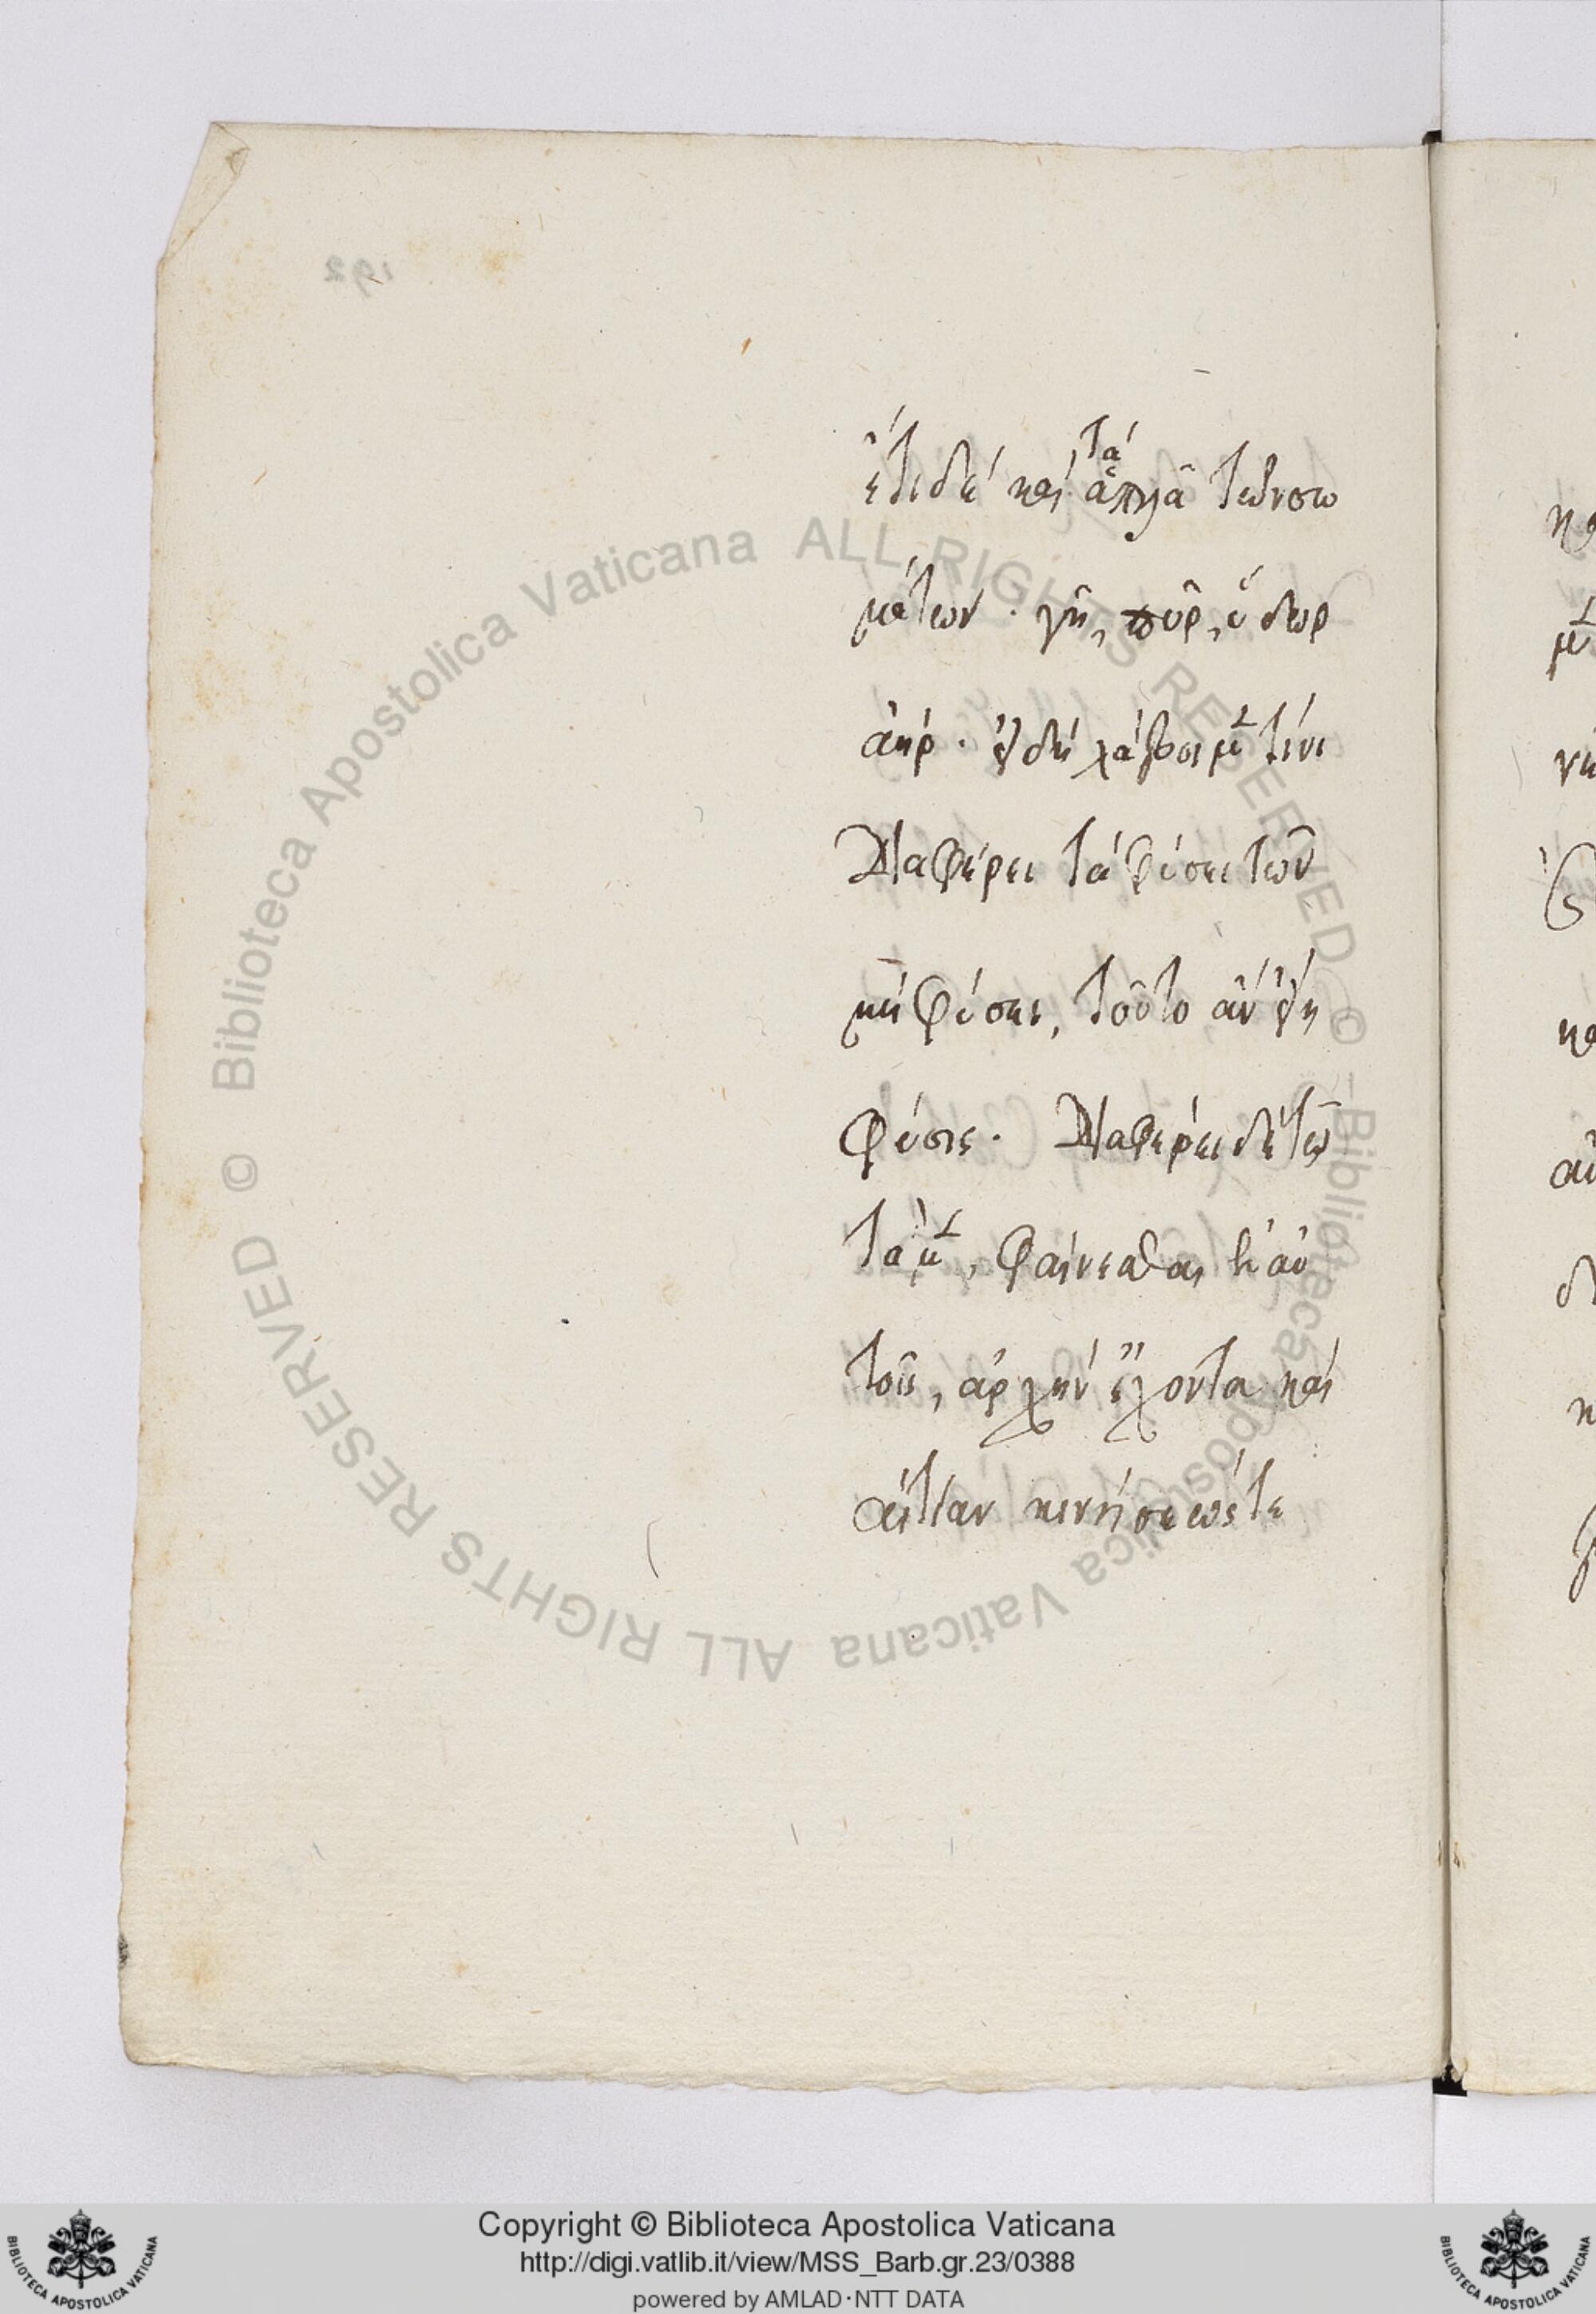 192
ἔτι δὲ καὶ τὰ ἁπλᾶ τῶν σω
μάτων · γῆ, πῦρ, ὕδωρ
ἀήρ · εἰ δὴ λάβοιμεν τίνι
Διαφέρει τὰ φύσει τῶν
μὴ φύσει, τοῦτο ἂν εἴη
φύσις · Διαφέρει δὲ τῷ
τὰ μὲν, φαίνεσθαι ἐν αὐ
τοῖς, ἀρχὴν ἔχοντα καὶ
αἰτίαν κινήσεώς τε
© Biblioteca Apostolica Vaticana ALL RIGHTS RESERVED © Biblioteca Apostolica Vaticana ALL RIGHTS RESERVED
Copyright © Biblioteca Apostolica Vaticana
http://digi.vatlib.it/view/MSS_Barb.gr.23/0388
powered by AMLAD·NTT DATA
BIBLIOTECA APOSTOLICA VATICANA
BIBLIOTECA APOSTOLICA VATICANA